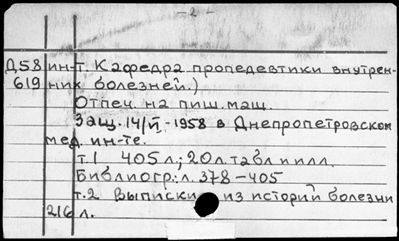 - 2 -
Д58 ин-т. Кафедра пропедевтики внутрен-
619 них болезней.)
Отпеч. на пиш. маш.
Защ. 14/VI-1958 в Днепропетровском
мед. ин-те.
т.1 405 л; 20 л. табл и илл.
Библиогр: л. 378-405
т.2 Выписки из историй болезни
216 л.